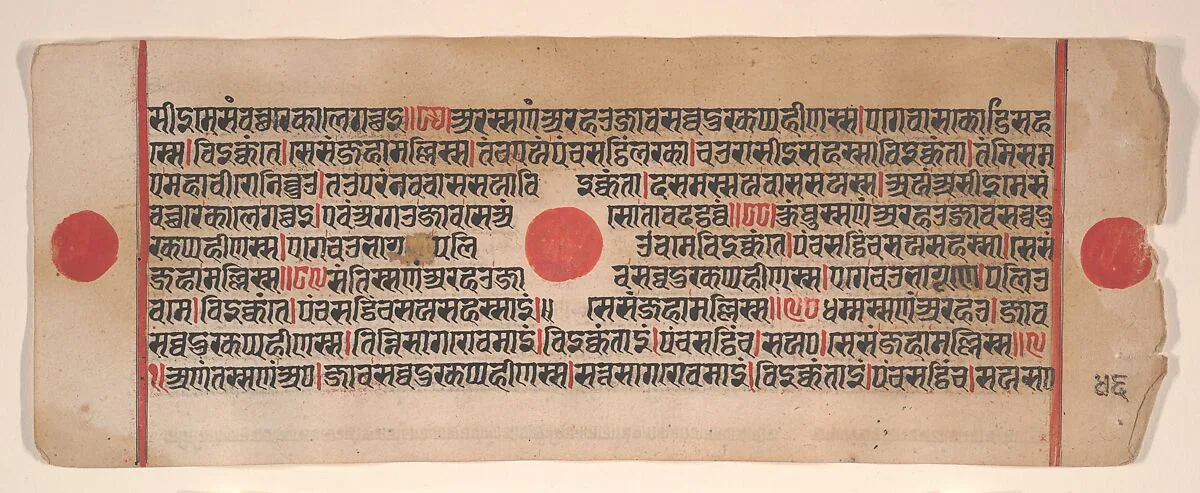 सीइमेसंवच्छरेकालेगच्छइ॥ अरस्सणंअरहउजावसव्वदुरकप्पहीणस्स।एगेवासकोडिसह
स्स।विइक्कंते।सेसंजहामल्लिस्स।तंचएयंपंचसट्ठिंलरका।चउरासीइसहस्साविइक्कंता।तंमिसम
एमहावीरोनिव्वुउ।तउपरंनववाससयावि इक्कंता।दसमस्सयवाससयस्स।अयंअसीइमेसं
वच्छरेकालेगच्छइ।एवंअग्गउजावसेअं सोतावदट्ठव्वं॥ कुंथुस्सणंअरहउजावसव्वदु
रकप्पहीणस्स।एगेचउभाग पलि उवमेविइक्कंते।पंचसट्ठिंचसयसहस्सा।सेसं
जहामल्लिस्स॥ संतिस्सणंअरहउजा वसव्वदुरकप्पहीणस्स।एगेचउभागूणे।पलिउ
वमे।विइक्कंते।पंचसट्ठिंचसयसहस्साइं।॥ सेसंजहामल्लिस्स॥ धम्मस्सणंअरहउ।जाव
सव्वदुरकप्पहीणस्स।तिन्निसागरोवमाइं।विइक्कंताइं।पंचसट्ठिंच।सयए।सेसंजहामल्लिस्स॥
॥अणंतस्सणंअए।जावसव्वदुरकप्पहीणस्स।सत्तसागरोवमाइं।विइक्कंताइं।पंचसट्ठिंच।सयसए
५६